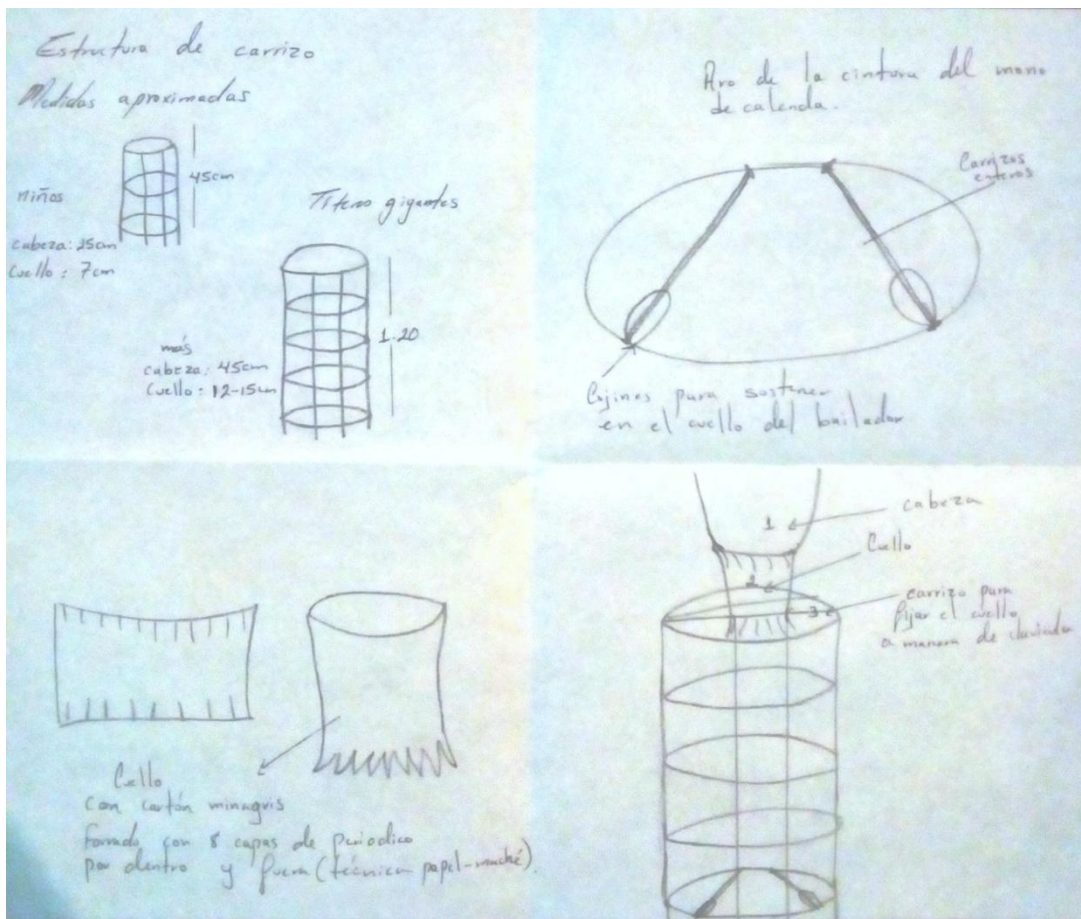 Estructura de carrizo
Medidas aproximadas
45cm
niños
cabeza: 25cm
cuello: 7cm
Títeres gigantes
1.20
más
cabeza: 45cm
cuello: 12-15cm
Aro de la cintura del mono
de calenda.
Carrizos
enteros
Cojines para sostener
en el cuello del bailador
Cuello
con cartón minagris
forrado con 8 capas de periodico
por dentro y fuera (técnica papel-maché).
1 cabeza
2 Cuello
3 carrizo para
fijar el cuello
a manera de